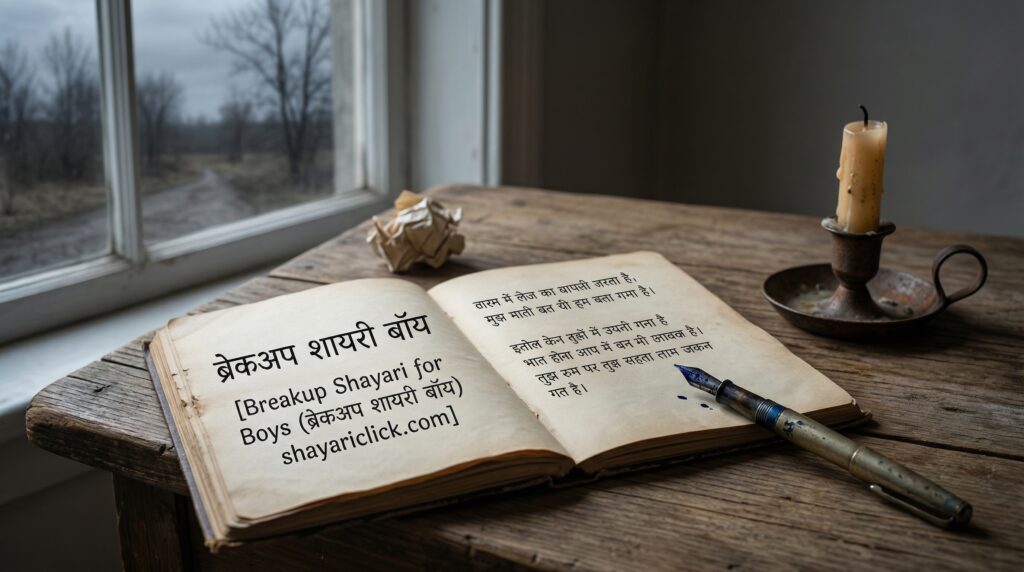 ब्रेकअप शायरी बॉय
[Breakup Shayari for
Boys (ब्रेकअप शायरी बॉय)
shayariclick.com]
तारम में लेज का बापनी जरता है,
मुझ माती बत यी हम बता गमा है।
इतोल केन तुसों में उयती गना है
भात होना आप में बन मी लावक है।
तुझ रुम पर तुझ सहता ताम जकन
गत है।